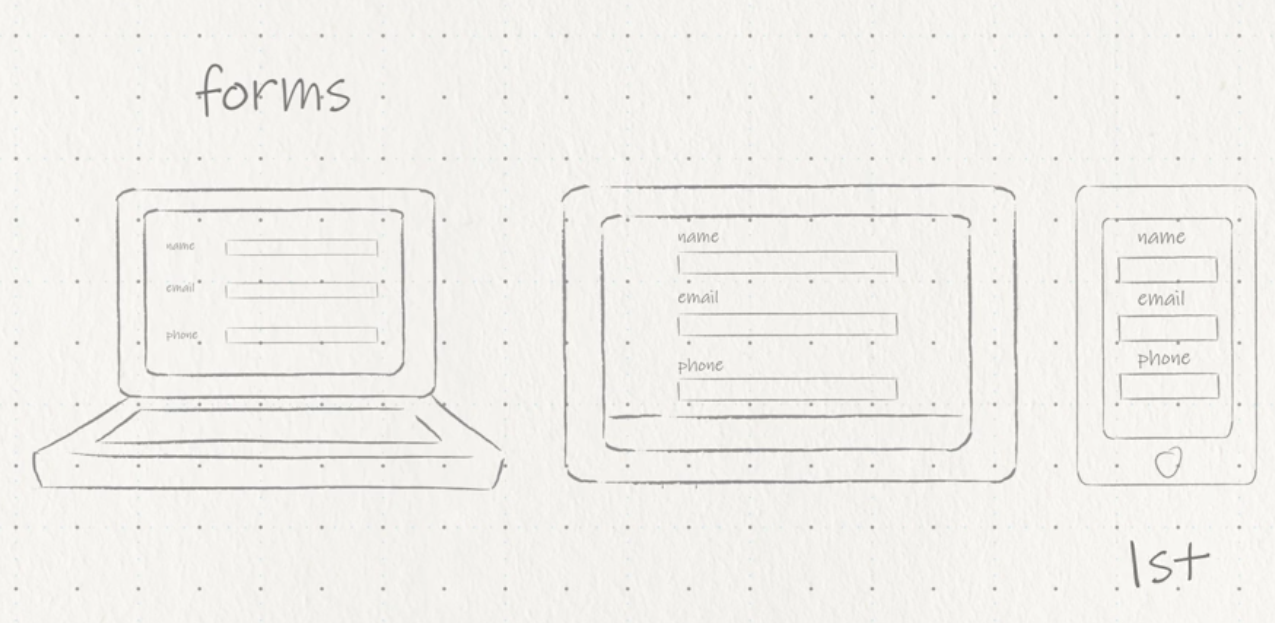 forms
name
email
phone
name
email
phone
name
email
phone
1st